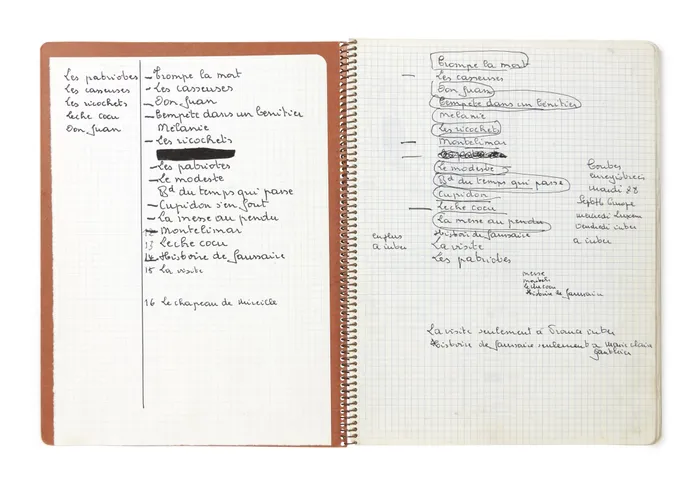 Les patriotes
Les casseuses
Les ricochets
Lèche cocu
Don Juan
Trompe la mort
Les casseuses
Don Juan
Tempête dans un bénitier
Mélanie
Les ricochets
Les patriotes
Le modeste
Bd du temps qui passe
Cupidon s'en fout
La messe au pendu
12 Montélimar
13 Lèche cocu
14 Histoire de faussaire
15 La visite
16 Le chapeau de Mireille
Trompe la mort
Les casseuses
Don Juan
Tempête dans un bénitier
Mélanie
Les ricochets
Montélimar
Le modeste
Bd du temps qui passe
Cupidon
Lèche cocu
La messe au pendu
Histoire de faussaire
La visite
Les patriotes
en plus
à inter
Toutes
enregistrées
mardi 28
Europe
mercredi
vendredi inter
à inter
messe
lèche cocu
Histoire de faussaire
La visite seulement à inter
Histoire de faussaire seulement à